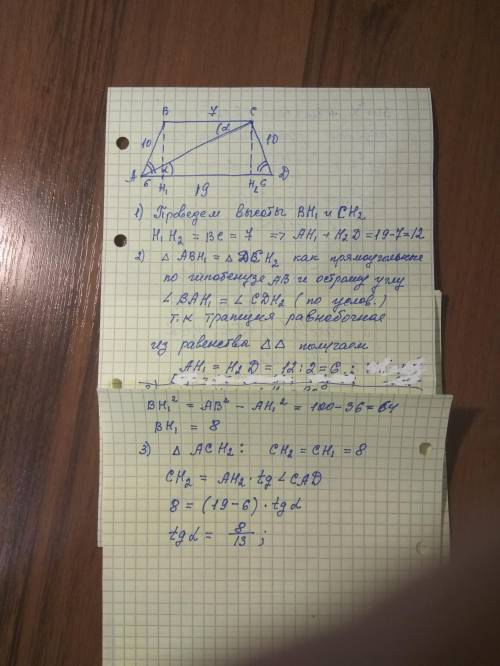 B 7 C
10 α 10
A 6 α H₁ 19 H₂ 6 D
1) Проведем высоты BH₁ и CH₂
H₁H₂ = BC = 7 => AH₁ + H₂D = 19-7=12
2) △ ABH₁ = △ DCH₂ как прямоугольные
по гипотенузе AB и острому углу
∠ BAH₁ = ∠ CDH₂ (по услов.)
т.к трапеция равнобочная
Из равенства △△ получаем
AH₁ = H₂D = 12 : 2 = 6 ;
BH₁² = AB² - AH₁² = 100-36=64
BH₁ = 8
3) △ ACH₂: CH₂ = CH₁ = 8
CH₂ = AH₂ · tg ∠CAD
8 = (19-6) · tg α
tg α = 8/13 ;